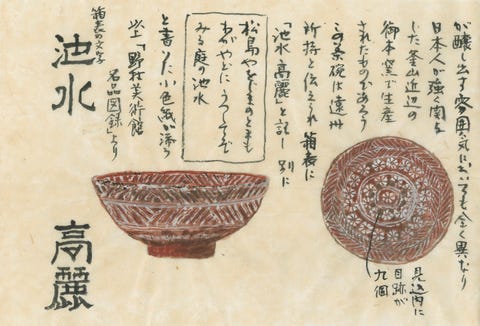 が醸し出す雰囲気においても全く異なり
日本人が強く関与
した釜山近辺の
御本窯で生産
されたものであろう
この茶碗は遠州
所持と伝えられ箱表に
「池水高麗」と記し別に
松島や
わがやどにうつしてぞ
みる庭の池水
と書いた小色紙が添う
以上「野村美術館
名品図録」より
箱表の文字
池水
高麗
見込内に
目跡が
九個